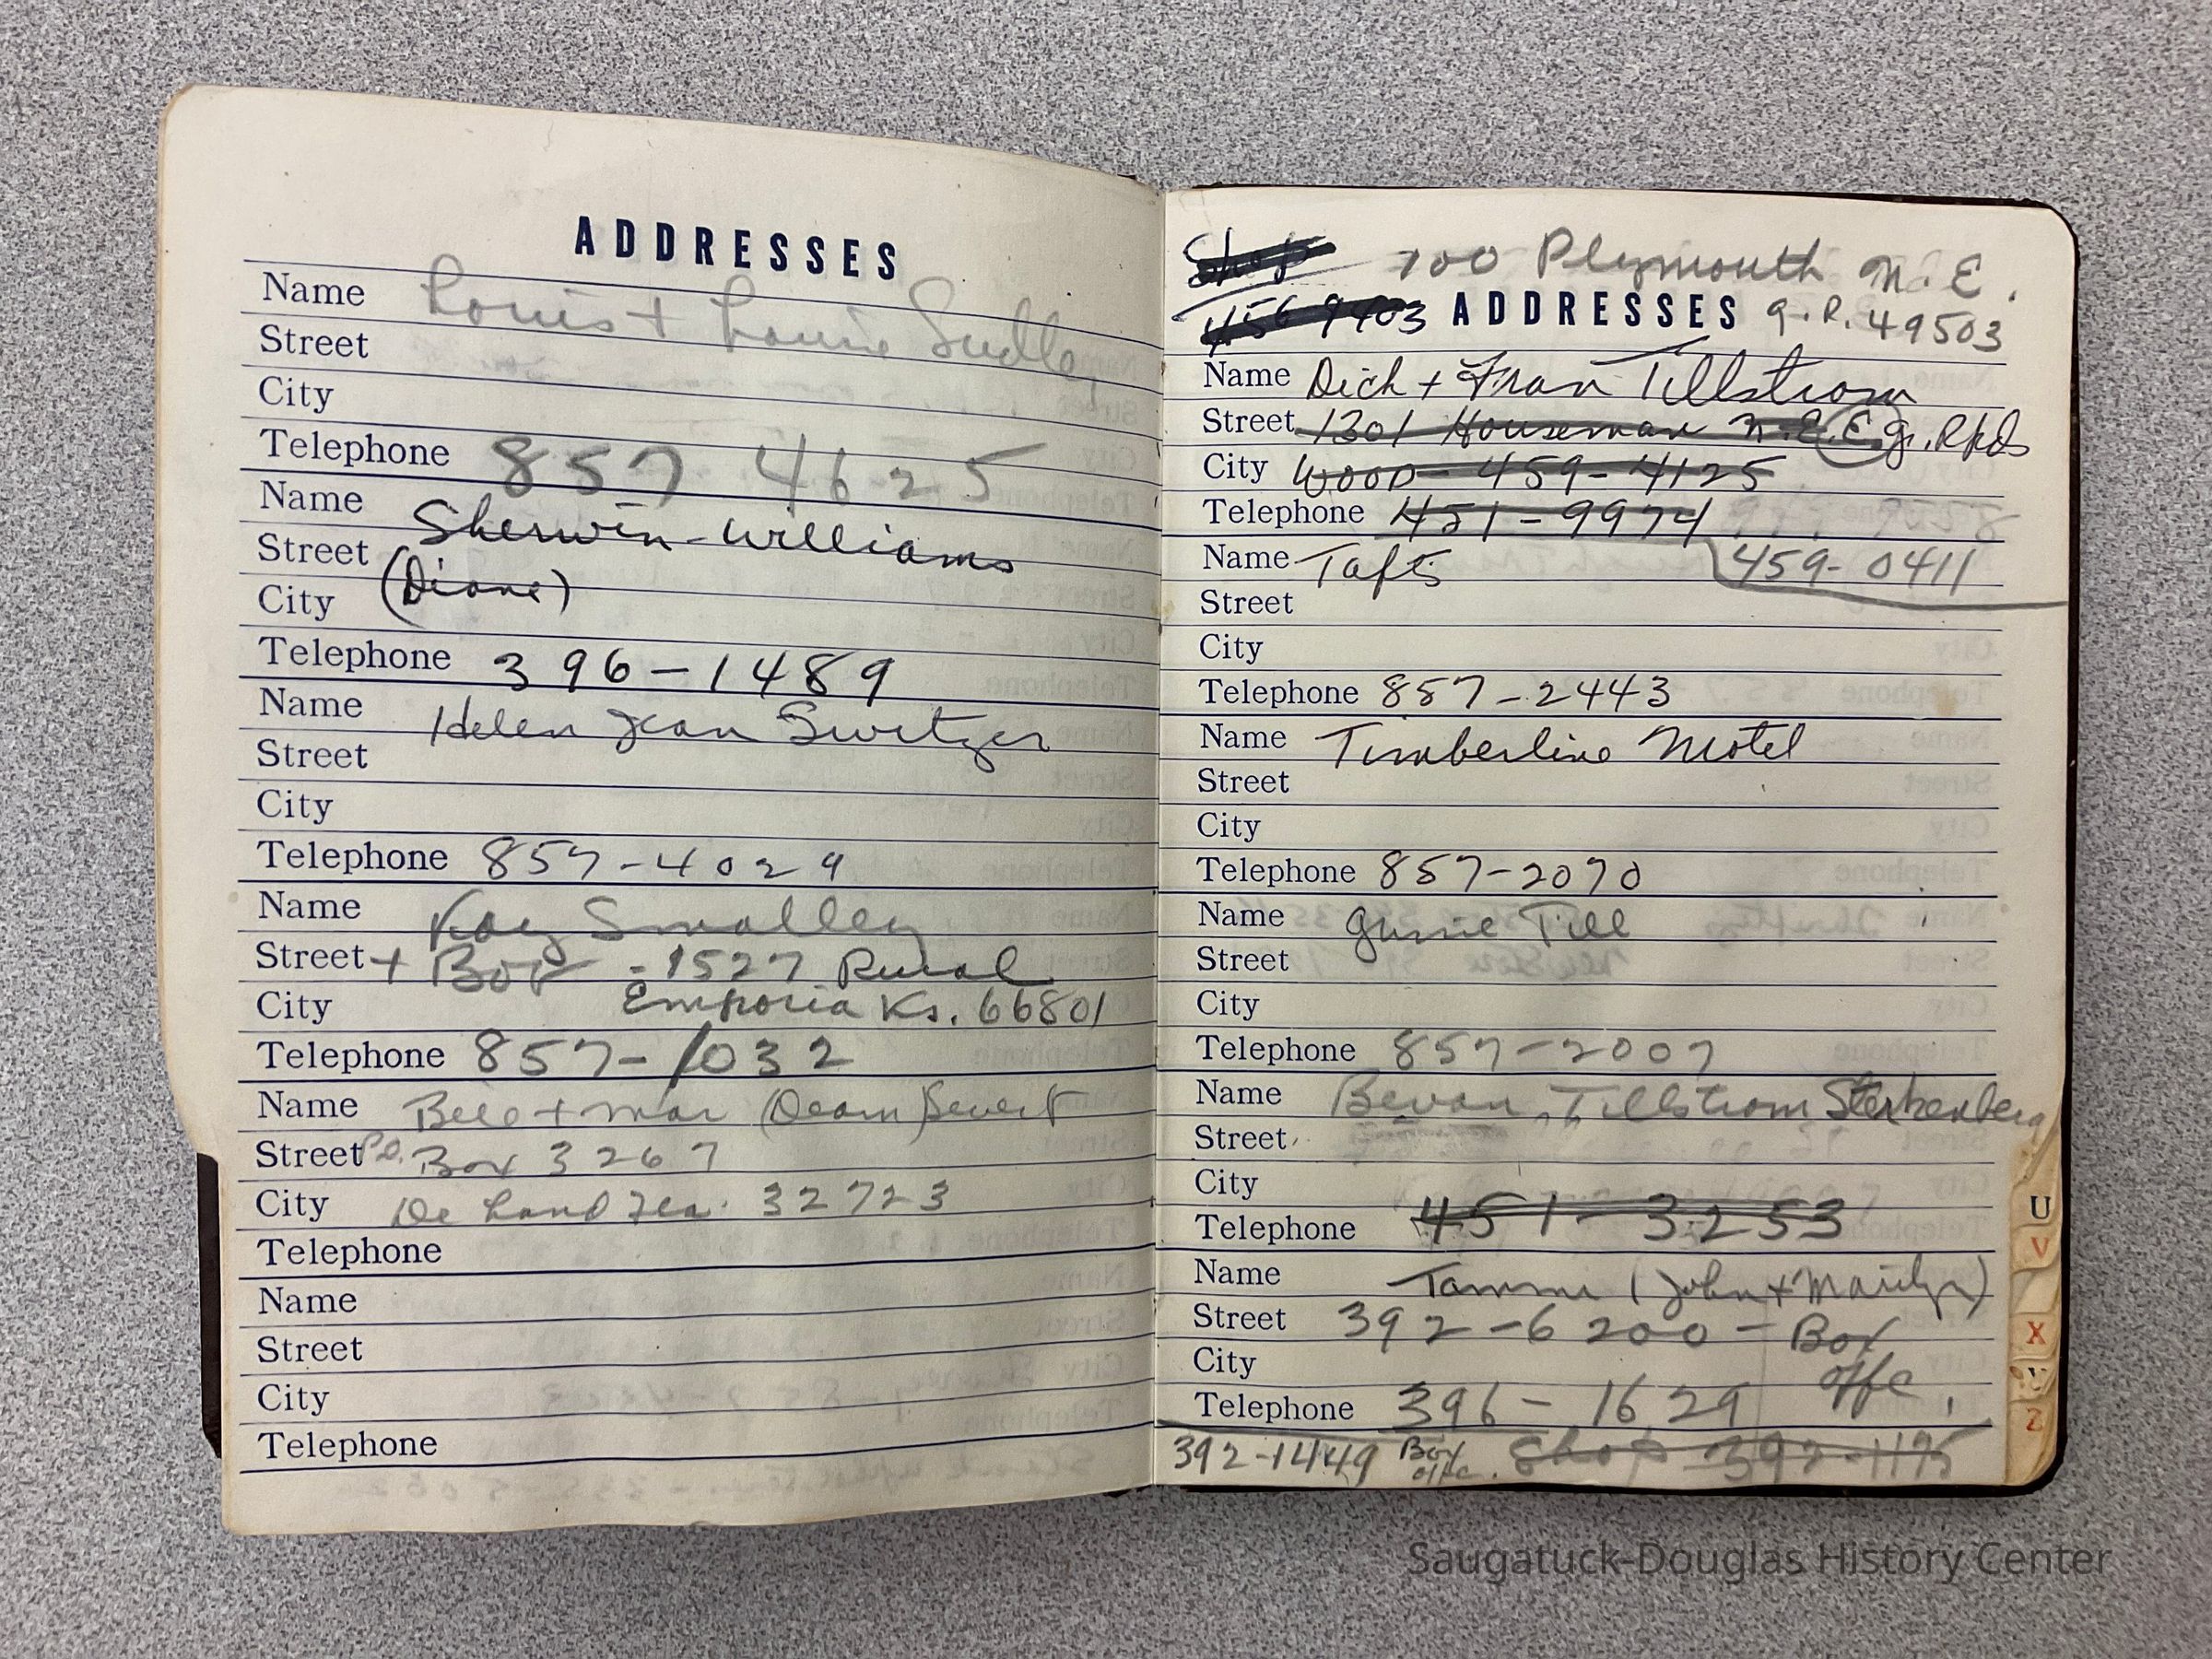 ADDRESSES
Name Louis +
Street
City
Telephone 857 4625
Name Sherwin-Williams
Street (Diane)
City
Telephone 396-1489
Name Helen Jean Switzer
Street
City
Telephone 857-4029
Name Kay Smalley
Street + Bob - 1527 Rural
City Emporia Ks. 66801
Telephone 857-1032
Name + Mar (Deam)
Street P.O. Box 3267
City De Land Fla. 32723
Telephone
Name
Street
City
Telephone
Shop 700 Plymouth N.E.
456 9403 ADDRESSES G.R. 49503
Name Dick + Fran Tillstrom
Street 1301 Houseman N.E. Gr. Rpds
City WOOD - 459-4125
Telephone 451-9974
Name Tafts 459-0411
Street
City
Telephone 857-2443
Name Timberline Motel
Street
City
Telephone 857-2070
Name Till
Street
City
Telephone 857-2007
Name Bevan Tillstrom Sterkenberg
Street
City
Telephone 451-3253
Name (John + Marilyn)
Street 392-6200 - Box
City offc
Telephone 396-1629
392-1449 Box offc. Shop 392-1175
U
V
X
Y
Z
Saugatuck-Douglas History Center